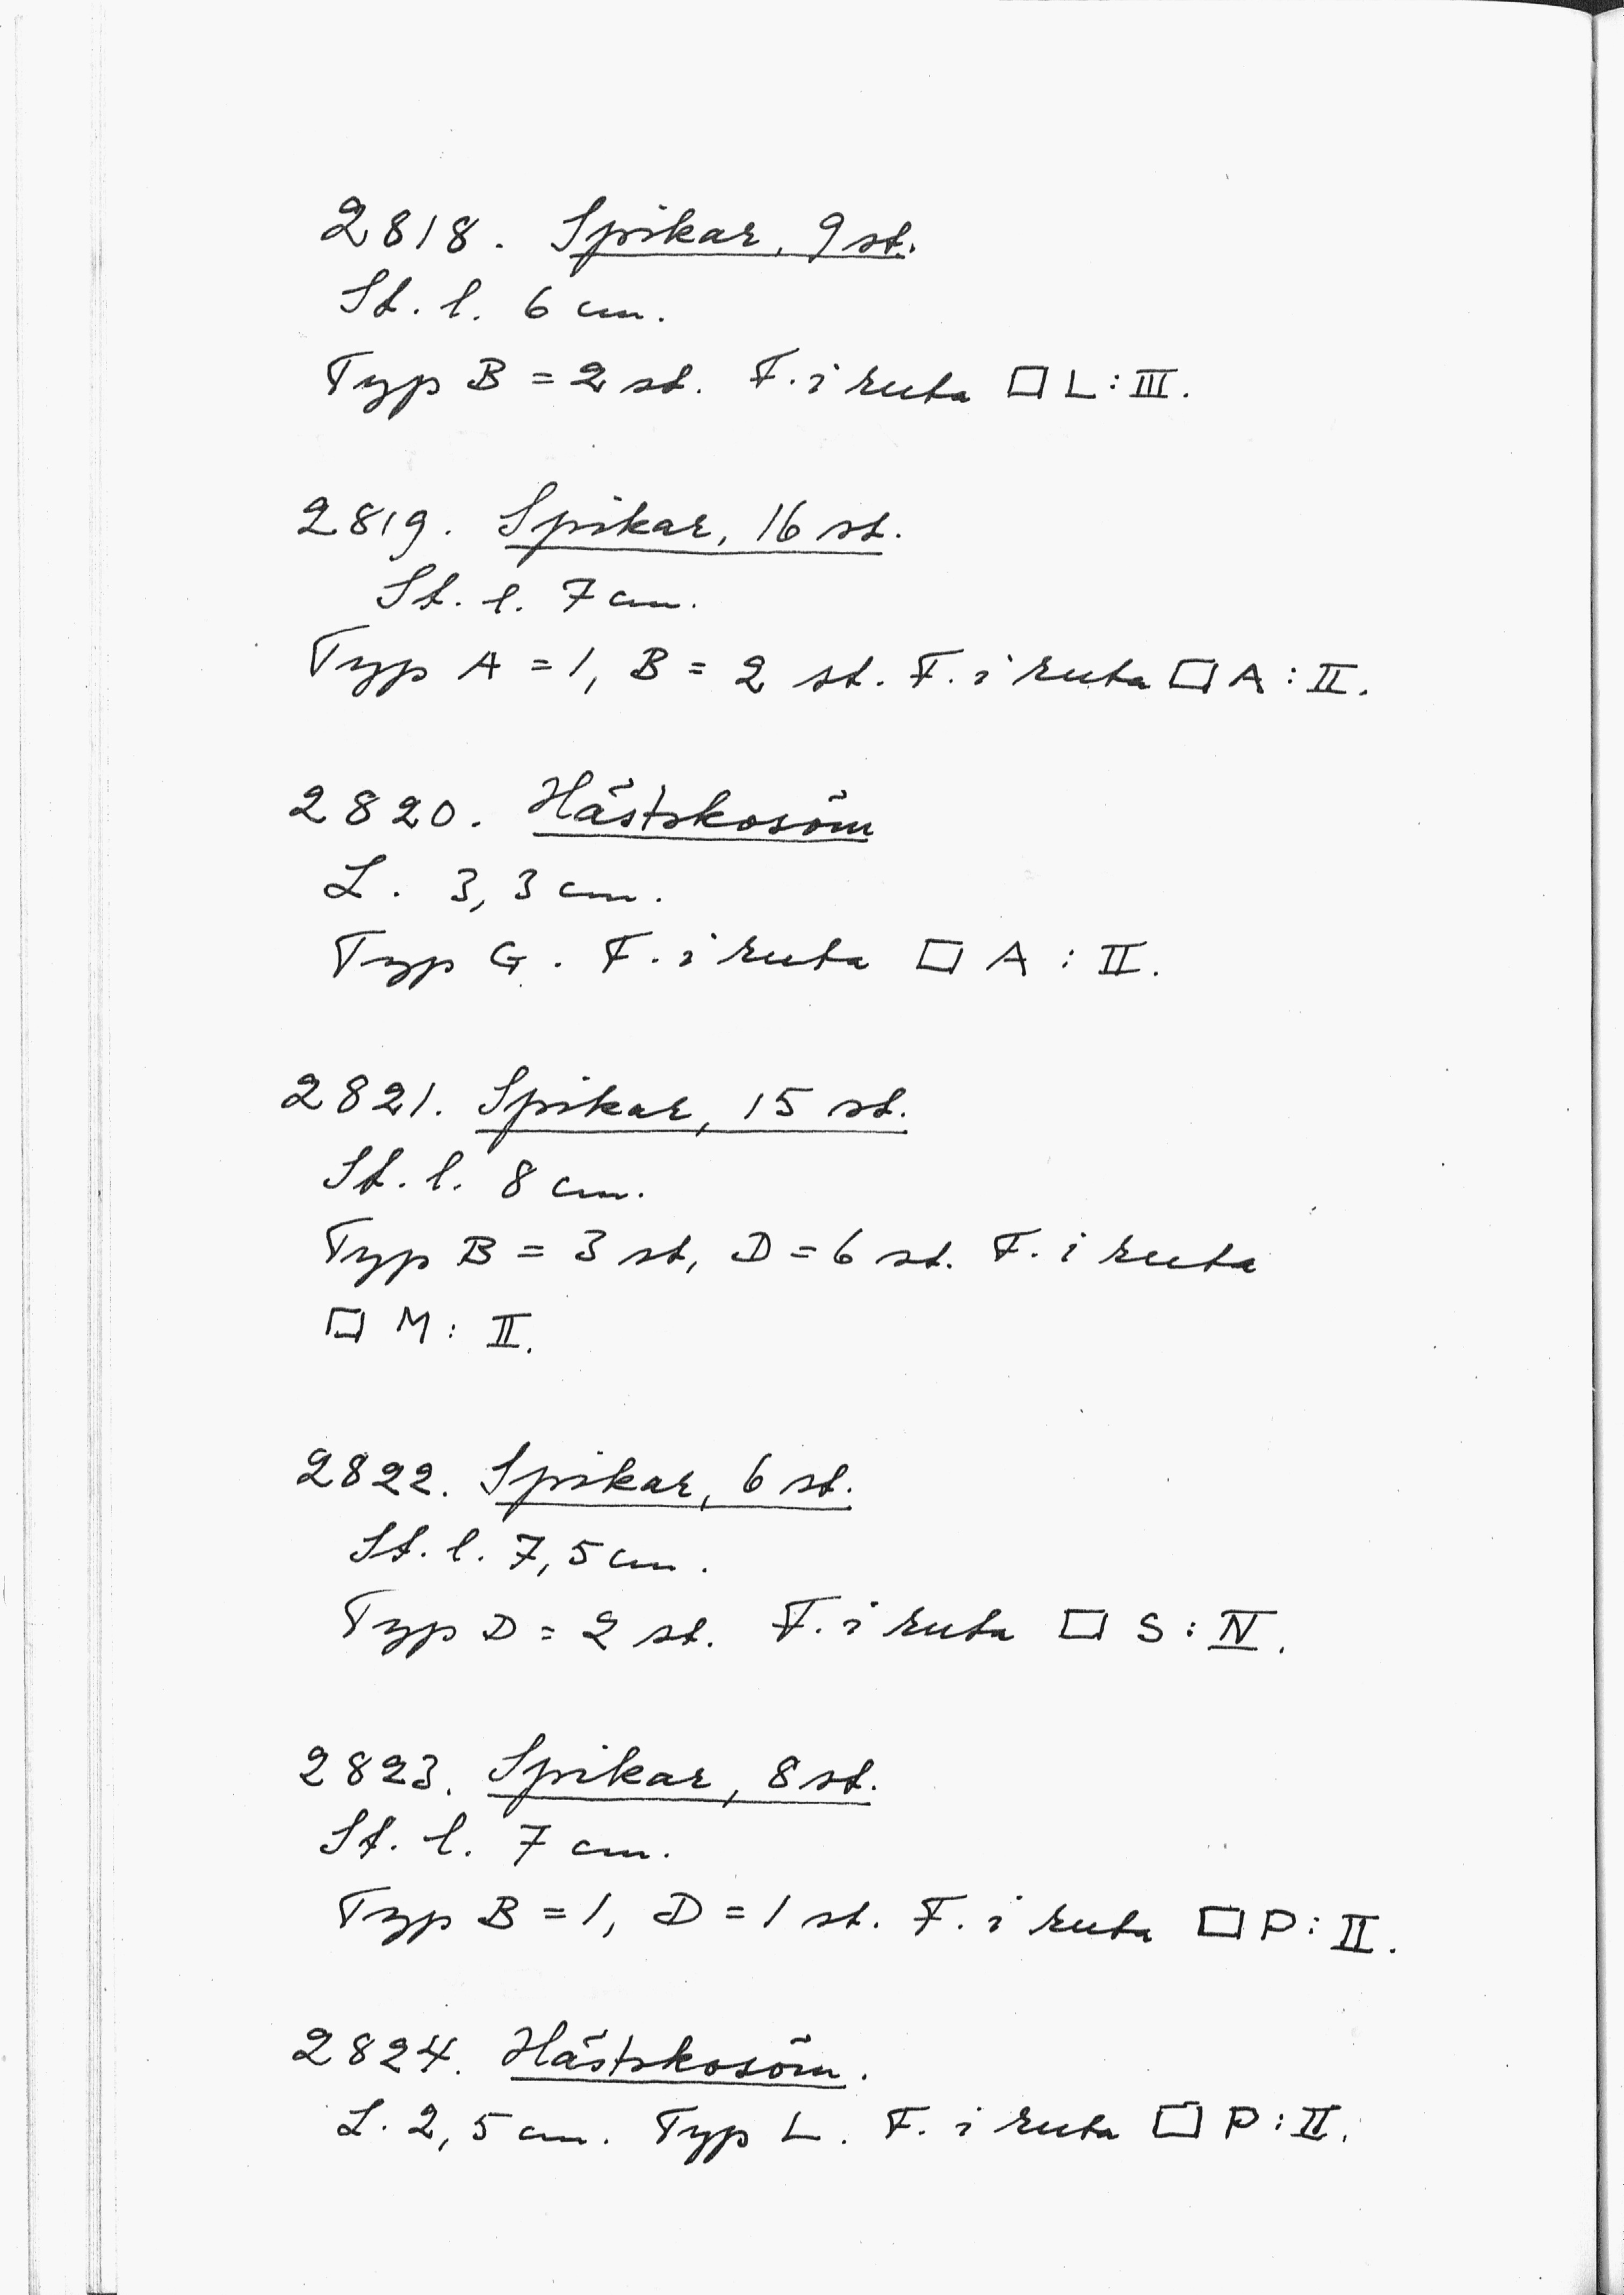 2818. Spikar, 9 st.
St. l. 6 cm.
Typ B = 2 st. F. i ruta □ L : III.
2819. Spikar, 16 st.
St. l. 7 cm.
Typ A = 1, B = 2 st. F. i ruta □ A : II.
2820. Hästskosöm
L. 3,3 cm.
Typ G. F. i ruta □ A : II.
2821. Spikar, 15 st.
St. l. 8 cm.
Typ B = 3 st, D = 6 st. F. i ruta
□ M : II.
2822. Spikar, 6 st.
St. l. 7,5 cm.
Typ D = 2 st. F. i ruta □ S : IV.
2823. Spikar, 8 st.
St. l. 7 cm.
Typ B = 1, D = 1 st. F. i ruta □ P : II.
2824. Hästskosöm.
L. 2,5 cm. Typ L. F. i ruta □ P : II.